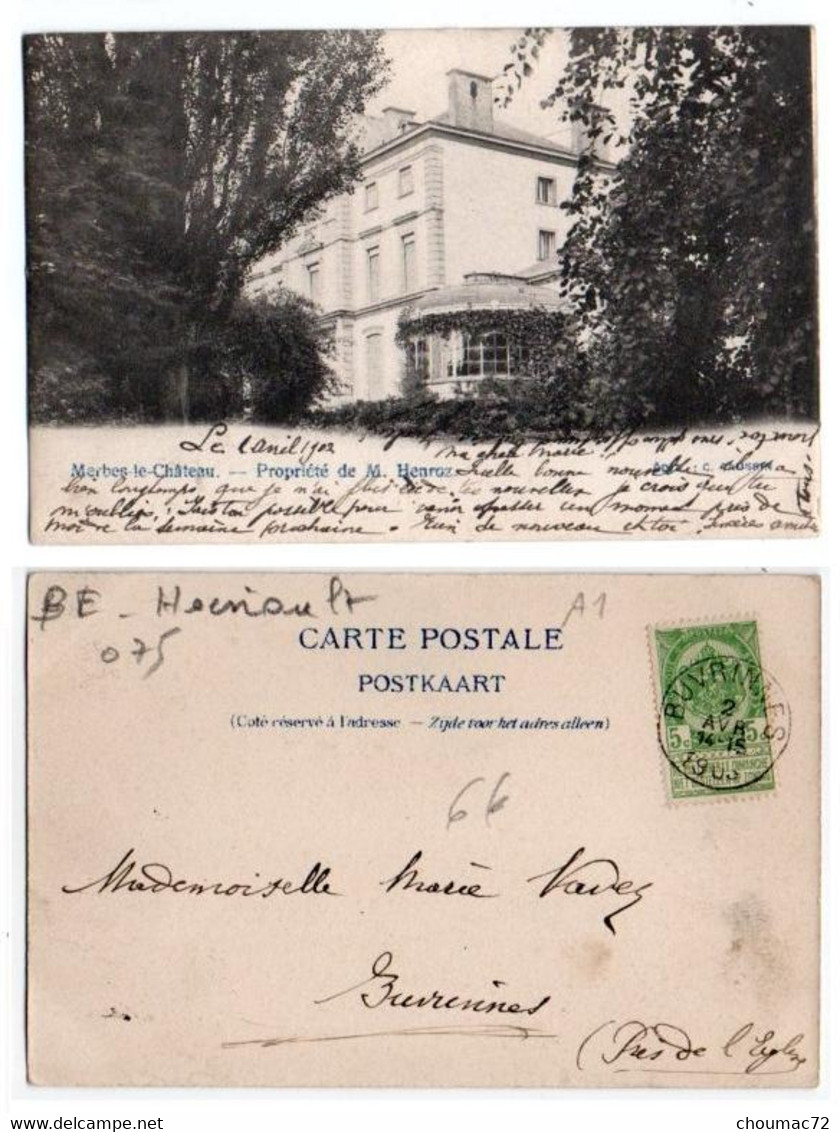 Le 1 avril 1902
ma chère Marie.
Merbes-le-Château. — Propriété de M. Henroz
Quelle bonne nouvelle il y a
bien longtemps que je n'ai de tes nouvelles je crois que tu
m'oublies, possible pour venir passer un moment près de
moi la semaine prochaine. Rien de nouveau et toi
BE - Heinault
A1
075
CARTE POSTALE
POSTKAART
(Coté réservé à l'adresse — Zijde voor het adres alleen)
BUVRINNES
2
AVR
14 15
1903
5c 5
66
Mademoiselle Marie
Buvrinnes
(Près de l'Eglise
© choumac72